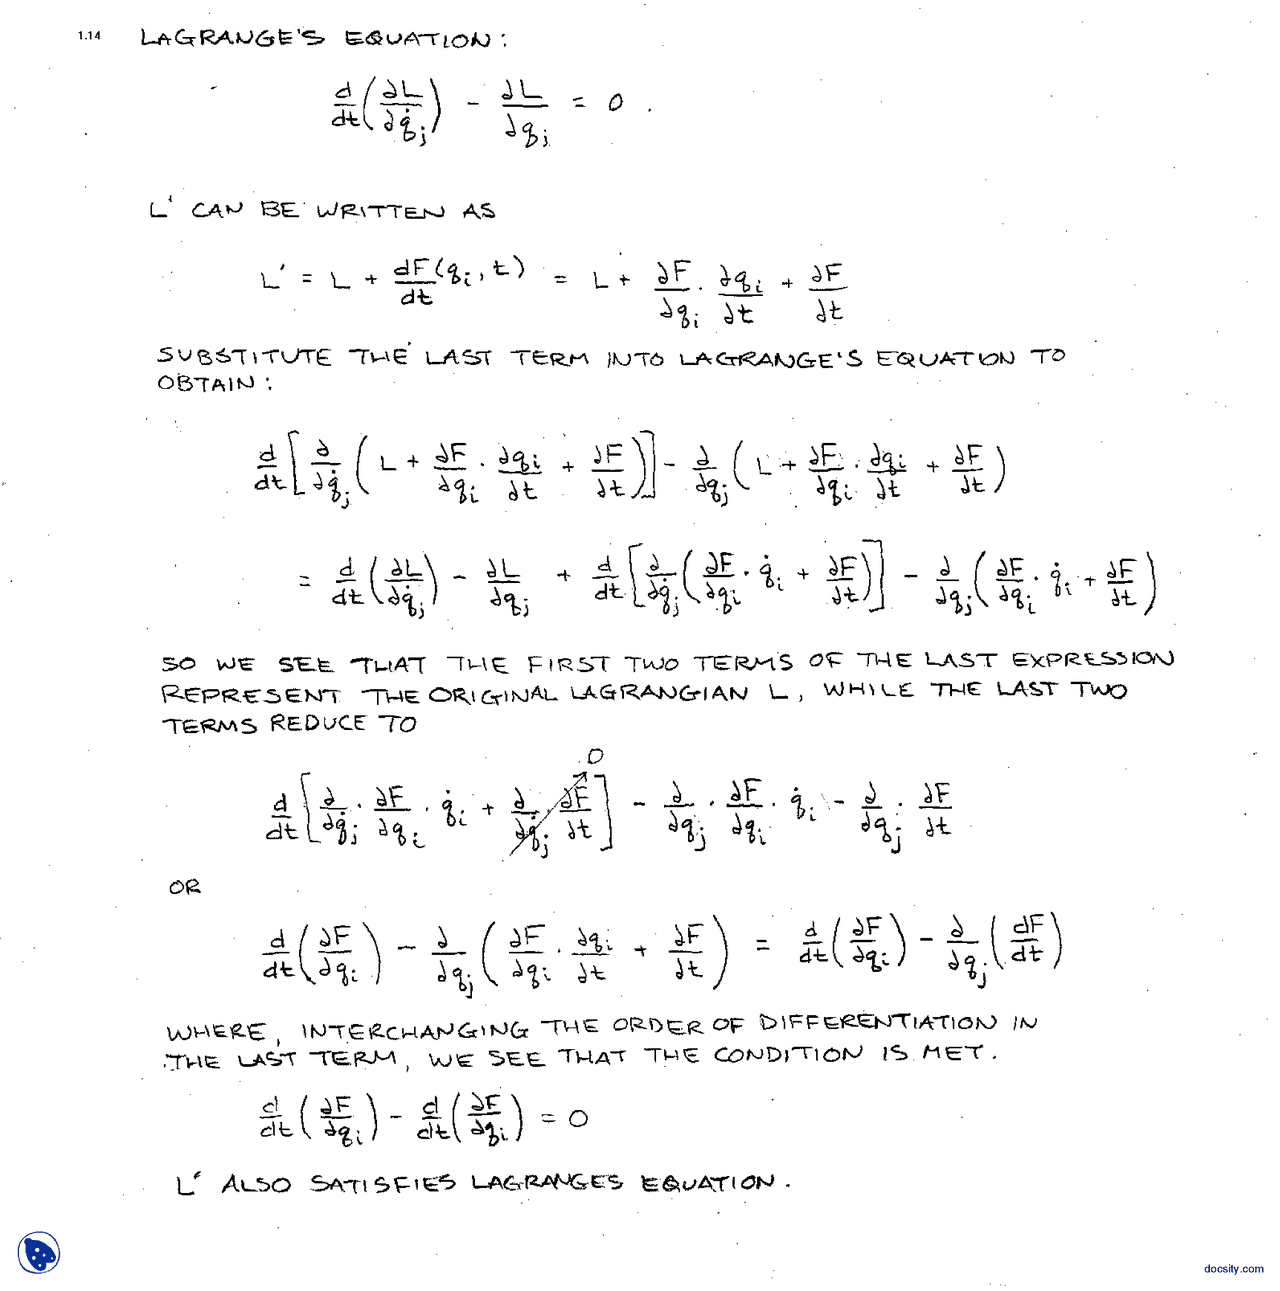 1.14 LAGRANGE'S EQUATION:
d/dt(∂L/∂q̇j) - ∂L/∂qj = 0.
L' CAN BE WRITTEN AS
L' = L + dF(qi, t)/dt = L + ∂F/∂qi · ∂qi/∂t + ∂F/∂t
SUBSTITUTE THE LAST TERM INTO LAGRANGE'S EQUATION TO
OBTAIN:
d/dt[∂/∂q̇j(L + ∂F/∂qi · ∂qi/∂t + ∂F/∂t)] - ∂/∂qj(L + ∂F/∂qi · ∂qi/∂t + ∂F/∂t)
= d/dt(∂L/∂q̇j) - ∂L/∂qj + d/dt[∂/∂q̇j(∂F/∂qi · q̇i + ∂F/∂t)] - ∂/∂qj(∂F/∂qi · q̇i + ∂F/∂t)
SO WE SEE THAT THE FIRST TWO TERMS OF THE LAST EXPRESSION
REPRESENT THE ORIGINAL LAGRANGIAN L, WHILE THE LAST TWO
TERMS REDUCE TO
0
d/dt[∂/∂q̇j · ∂F/∂qi · q̇i + ∂/∂q̇j · ∂F/∂t] - ∂/∂qj · ∂F/∂qi · q̇i - ∂/∂qj · ∂F/∂t
OR
d/dt(∂F/∂qi) - ∂/∂qj(∂F/∂qi · ∂qi/∂t + ∂F/∂t) = d/dt(∂F/∂qi) - ∂/∂qj(dF/dt)
WHERE, INTERCHANGING THE ORDER OF DIFFERENTIATION IN
THE LAST TERM, WE SEE THAT THE CONDITION IS MET.
d/dt(∂F/∂qi) - d/dt(∂F/∂qi) = 0
L' ALSO SATISFIES LAGRANGES EQUATION.
docsity.com